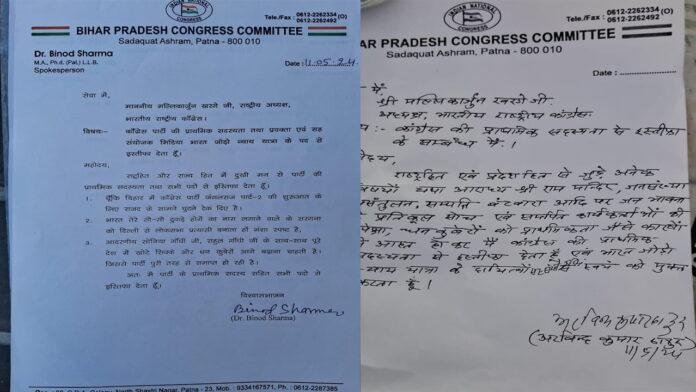 INDIAN NATIONAL CONGRESS
Tele./Fax : 0612-2262334 (O)
0612-2262492
BIHAR PRADESH CONGRESS COMMITTEE
Sadaquat Ashram, Patna - 800 010
Dr. Binod Sharma
M.A., Ph.d. (Pal.) L.L.B.
Spokesperson
Date : 11.05.24
सेवा में,
माननीय मल्लिकार्जुन खरगे जी, राष्ट्रीय अध्यक्ष,
भारतीय राष्ट्रीय काँग्रेस।
विषयः- काँग्रेस पार्टी की प्राथमिक सदस्यता तथा प्रवक्ता एवं सह
संयोजक मिडिया भारत जोड़ो न्याय यात्रा के पद से
इस्तीफा देता हूँ।
महोदय,
राष्ट्रहित में और राज्य हित में दुखी मन से पार्टी की
प्राथमिक सदस्यता तथा सभी पदों से इस्तिफा देता हूँ।
1. चूँकि बिहार में काँग्रेस पार्टी जंगलराज पार्ट-2 की शुरूआत के
लिए राजद के सामने घुटने टेक दिए है।
2. भारत तेरे सौ-सौ टुकड़े होंगे का नारा लगाने वाले के सरगना
को दिल्ली से लोकसभा प्रत्याशी बनाना हीं मंशा स्पष्ट है,
3. आदरणीय सोनिया गाँधी जी, राहुल गाँधी जी के साथ-साथ पूरे
देश में खोटे सिक्के और धन कुबेरों आगे बढ़ाना चाहती है।
जिससे पार्टी पूरी तरह से समाप्त हो रही है।
अतः में पार्टी के प्राथमिक सदस्य सहित सभी पदों से
इस्तिफा देता हूँ।
विश्वासभाजन
Binod Sharma
(Dr. Binod Sharma)
Patna - 23, Mob. : 9334167571, Ph. : 0612-2287385
INDIAN NATIONAL CONGRESS
Tele./Fax : 0612-2262334 (O)
0612-2262492
HAR PRADESH CONGRESS COMMITTEE
Sadaquat Ashram, Patna - 800 010
Date : ...................
में
श्री मल्लिकार्जुन खरगे जी
अध्यक्ष, भारतीय राष्ट्रीय कांग्रेस
:- कांग्रेस की प्राथमिक सदस्यता से इस्तीफा
के सम्बन्ध में।
राष्ट्रहित एवं प्रदेश हित से जुड़े अनेक
तथा आराध्य श्री राम मन्दिर, जनसंख्या
सम्पत्ति बंटवारा आदि पर जन भावना
प्रतिकूल सोच एवं समर्पित कार्यकर्ताओं की
धन कुबेरों को प्राथमिकता जैसे कारणों
आहत होकर मैं कांग्रेस की प्राथमिक
से इस्तीफा देता हूँ एवं भारत जोड़ो
न्याय यात्रा के दायित्वों से स्वयं को मुक्त
करता हूँ।
(अरविन्द कुमार ठाकुर)
11/5/24